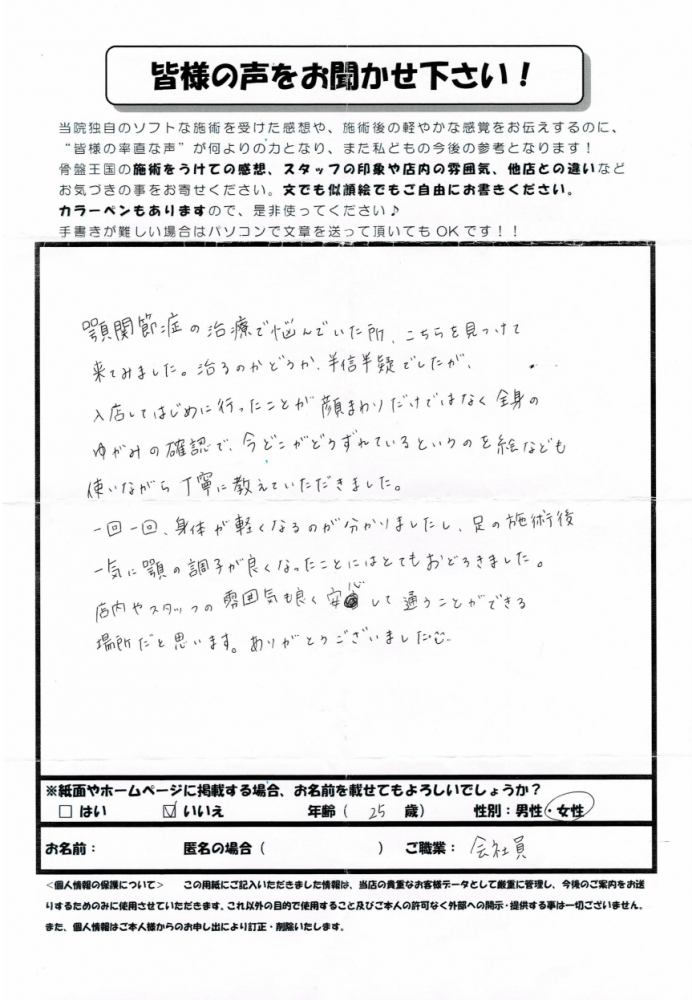 皆様の声をお聞かせ下さい！
当院独自のソフトな施術を受けた感想や、施術後の軽やかな感覚をお伝えするのに、
“皆様の率直な声”が何よりの力となり、また私どもの今後の参考となります！
骨盤王国の施術をうけての感想、スタッフの印象や店内の雰囲気、他店との違いなど
お気づきの事をお寄せください。文でも似顔絵でもご自由にお書きください。
カラーペンもありますので、是非使ってください♪
手書きが難しい場合はパソコンで文章を送って頂いてもOKです！！
顎関節症の治療で悩んでいた所、こちらを見つけて
来てみました。治るのかどうか、半信半疑でしたが、
入店してはじめに行ったことが顔まわりだけではなく全身の
ゆがみの確認で、今どこがどうずれているというのを絵なども
使いながら丁寧に教えていただきました。
一回一回、身体が軽くなるのが分かりましたし、足の施術後
一気に顎の調子が良くなったことにはとてもおどろきました。
店内やスタッフの雰囲気も良く安心して通うことができる
場所だと思います。ありがとうございました
※紙面やホームページに掲載する場合、お名前を載せてもよろしいでしょうか？
□ はい ☑ いいえ 年齢（ 25 歳） 性別：男性・女性
お名前： 匿名の場合（ ） ご職業： 会社員
＜個人情報の保護について＞ この用紙にご記入いただきました情報は、当店の貴重なお客様データとして厳重に管理し、今後のご案内をお送
りするためのみに使用させていただきます。これ以外の目的で使用すること及びご本人の許可なく外部への開示・提供する事は一切ございません。
また、個人情報はご本人様からのお申し出により訂正・削除いたします。